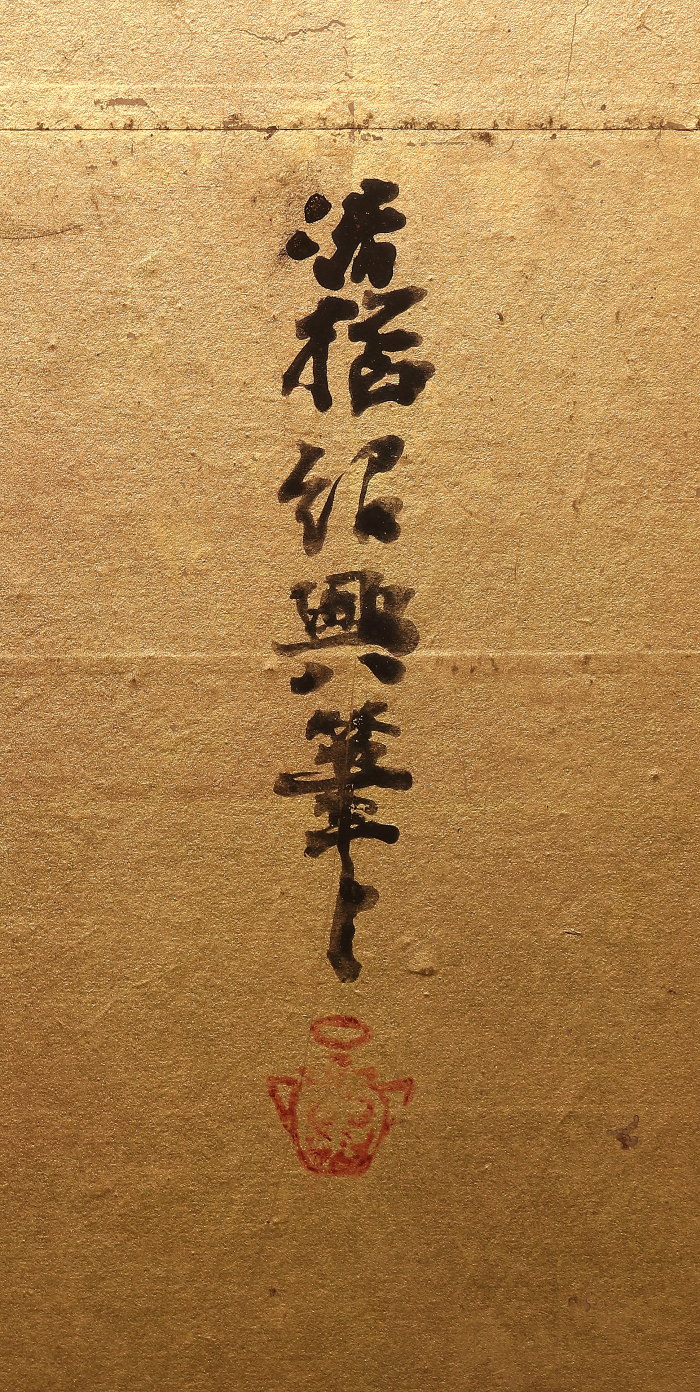 法橋紹興筆